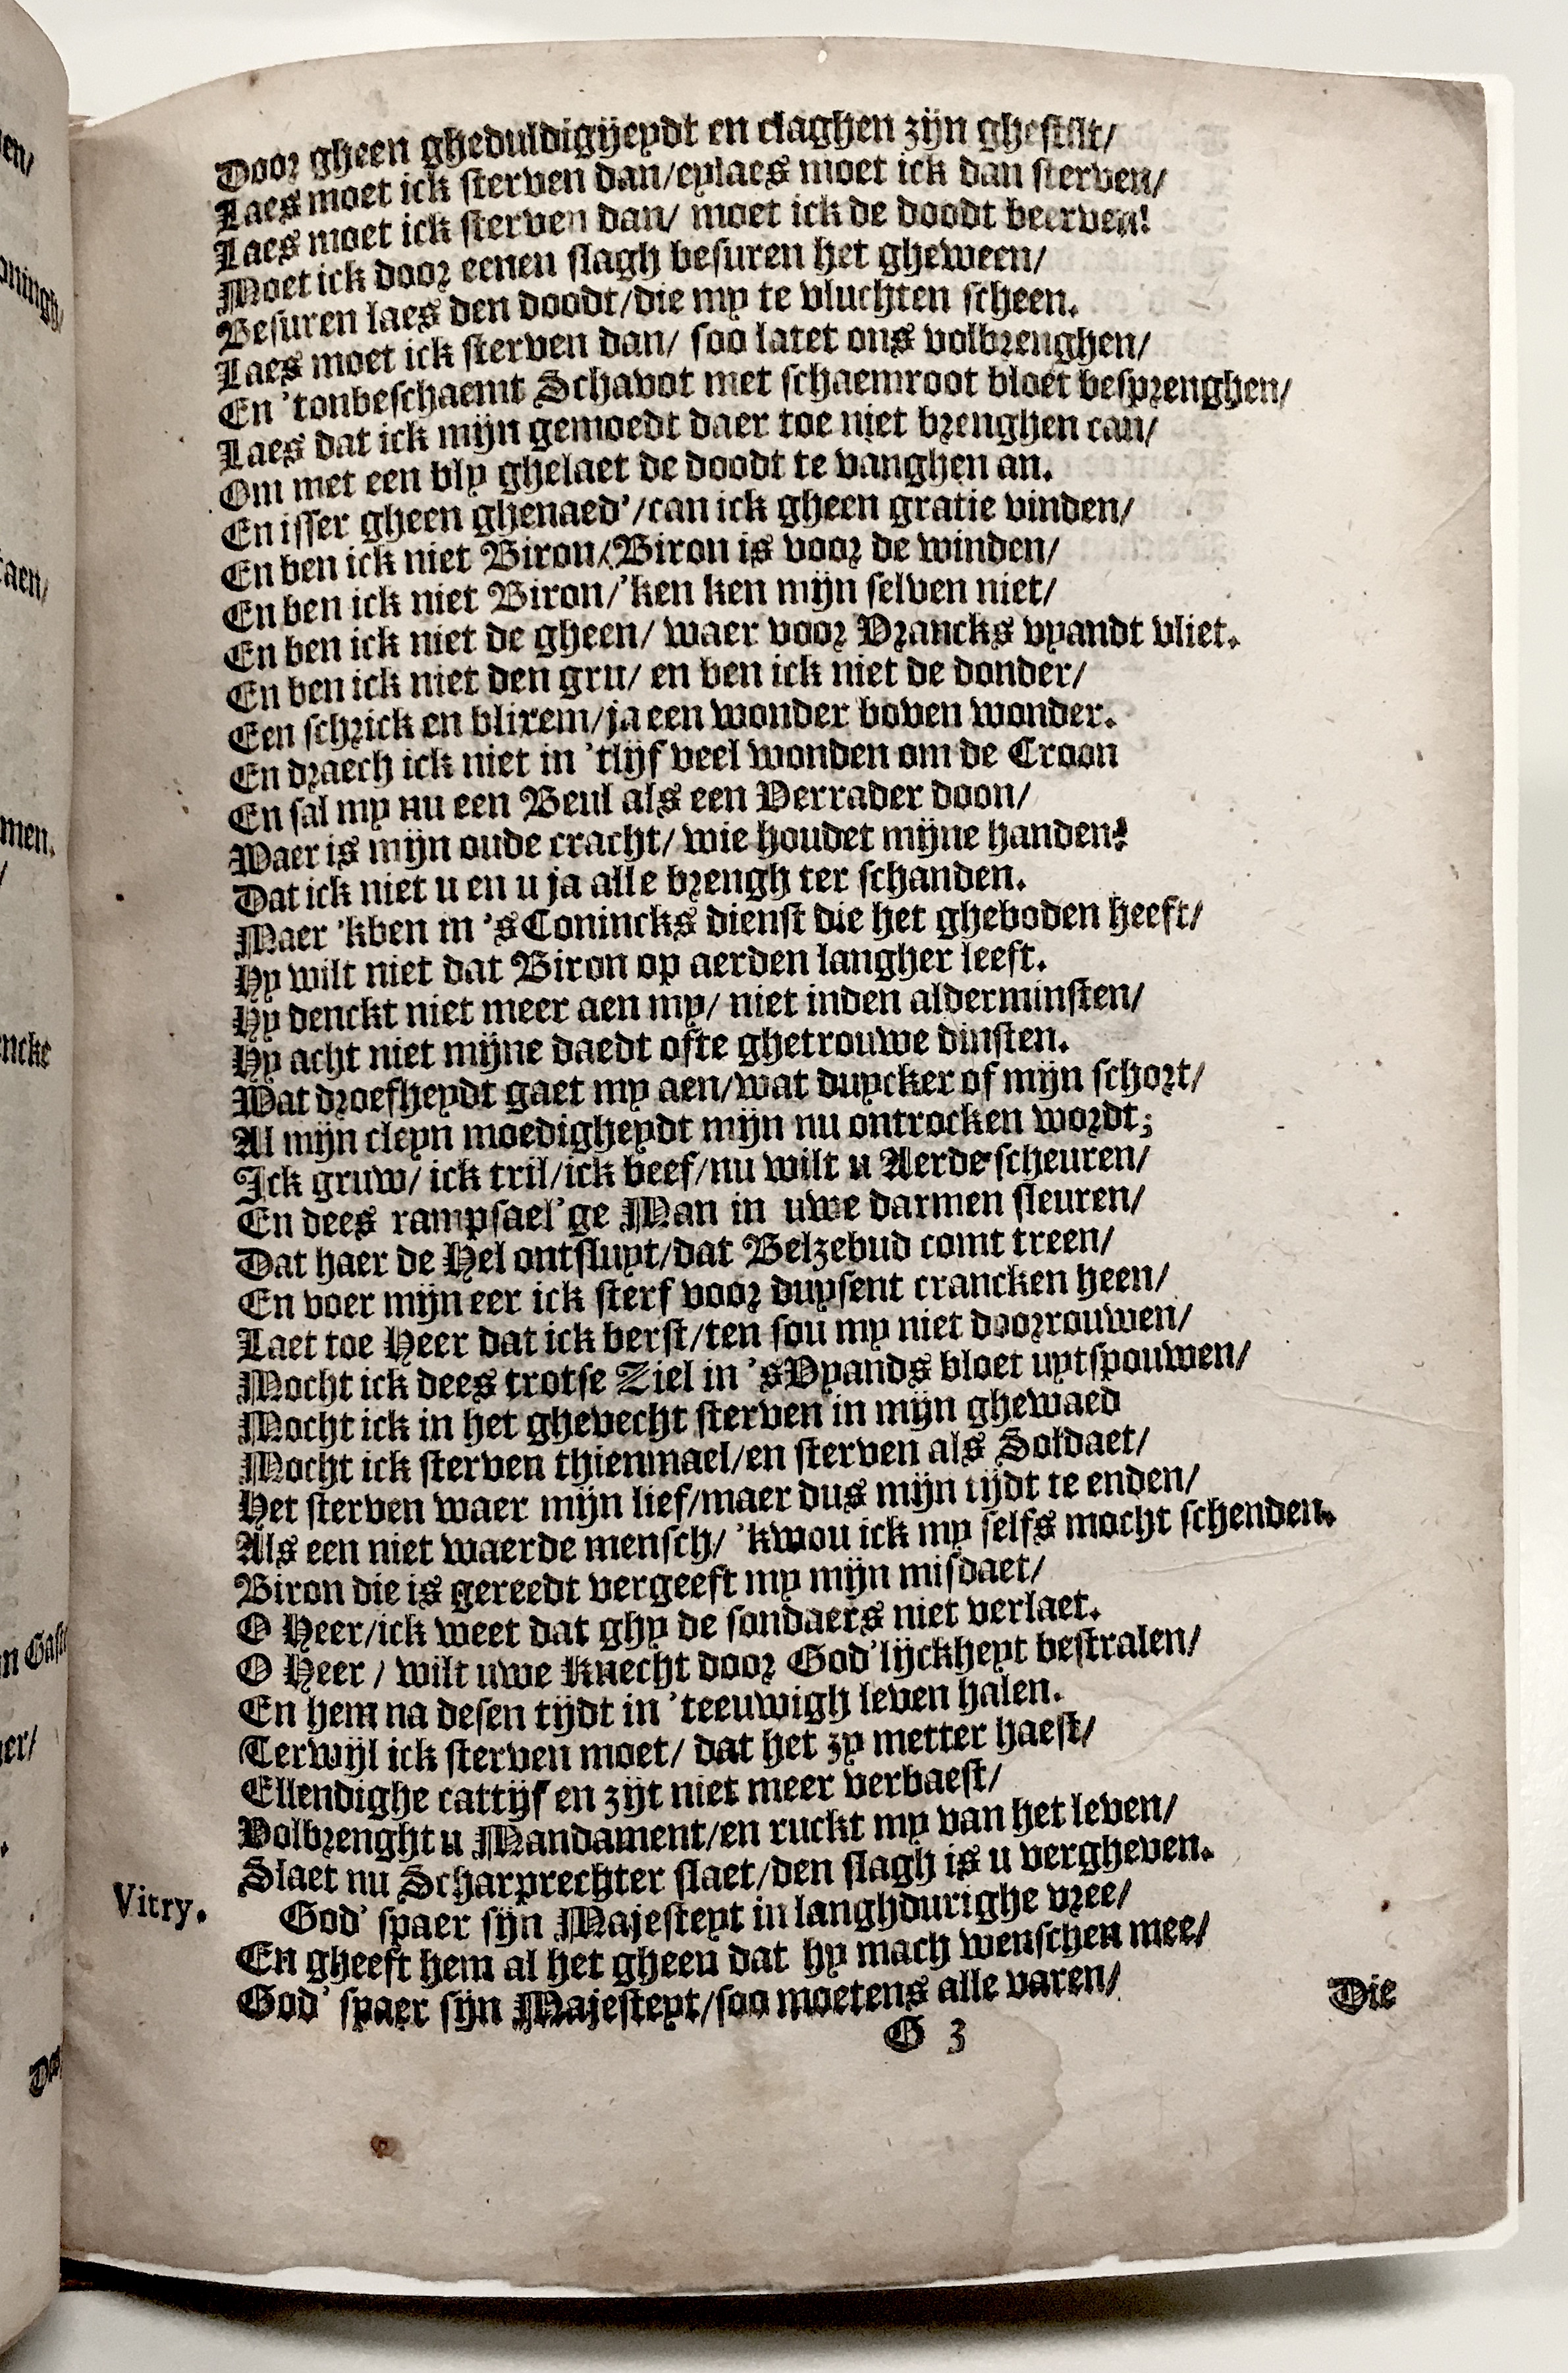 Door gheen gheduldigheydt en claghen zijn ghestilt/
Laes moet ick sterven dan/eylaes moet ick dan sterven/
Laes moet ick sterven dan/ moet ick de doodt beerven!
Moet ick door eenen slagh besuren het gheween/
Besuren laes den doodt/die my te vluchten scheen.
Laes moet ick sterven dan/ soo latet ons volbrenghen/
En 'tonbeschaemt Schavot met schaemroot bloet besprenghen/
Laes dat ick mijn gemoedt daer toe niet brenghen can/
Om met een bly ghelaet de doodt te vanghen an.
En isser gheen ghenaed'/can ick gheen gratie vinden/
En ben ick niet Biron/Biron is voor de winden/
En ben ick niet Biron/'ken ken mijn selven niet/
En ben ick niet de gheen/ waer voor Vrancks vyandt vliet.
En ben ick niet den gru/ en ben ick niet de donder/
Een schrick en blixem/ja een wonder boven wonder.
En draech ick niet in 'tlijf veel wonden om de Croon
En sal my nu een Beul als een Verrader doon/
Waer is mijn oude cracht/ wie houdet mijne handen?
Dat ick niet u en u ja alle brengh ter schanden.
Maer 'kben in 'sConincks dienst die het gheboden heeft/
Hy wilt niet dat Biron op aerden langher leeft.
Hy denckt niet meer aen my/ niet inden alderminsten/
Hy acht niet mijne daedt ofte ghetrouwe dinsten.
Wat droefheydt gaet my aen/wat duycker of mijn schort/
Al mijn cleyn moedigheydt mijn nu ontrocken wordt;
Ick gruw/ ick tril/ick beef/nu wilt u Aerde scheuren/
En dees rampsael'ge Man in uwe darmen sleuren/
Dat haer de Hel ontsluyt/dat Belzebud comt treen/
En voer mijn eer ick sterf voor duysent crancken heen/
Laet toe Heer dat ick berst/ten sou my niet doorrouwen/
Mocht ick dees trotse Ziel in 'sVyands bloet uytspouwen/
Mocht ick in het ghevecht sterven in mijn ghewaed
Mocht ick sterven thienmael/en sterven als Soldaet/
Het sterven waer mijn lief/maer dus mijn tijdt te enden/
Als een niet waerde mensch/ 'kwou ick my selfs mocht schenden.
Biron die is gereedt vergeeft my mijn misdaet/
O Heer/ick weet dat ghy de sondaers niet verlaet.
O Heer / wilt uwe Knecht door God'lijckheyt bestralen/
En hem na desen tijdt in 'teeuwigh leven halen.
Terwijl ick sterven moet/ dat het zy metter haest/
Ellendighe cattijf en zijt niet meer verbaest/
Volbrenght u Mandament/en ruckt my van het leven/
Slaet nu Scharprechter slaet/den slagh is u vergheven.
Vitry. God' spaer sijn Majesteyt in langhdurighe vree/
En gheeft hem al het gheen dat hy mach wenschen mee/
God' spaer sijn Majesteyt/soo moetens alle varen/
G 3 Die